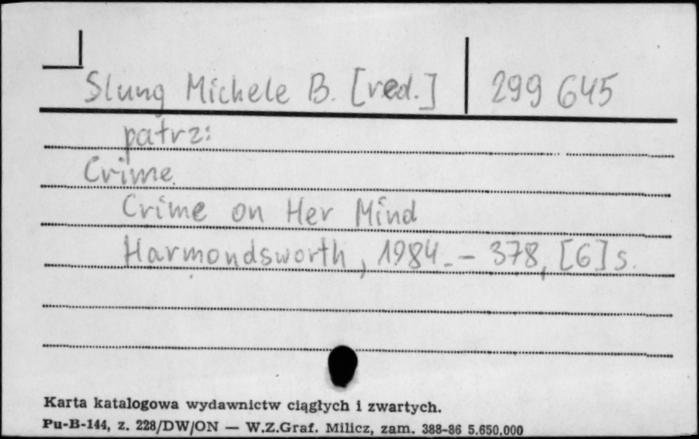 Slung Michele B. [red.] 299 645
patrz:
Crime
Crime on Her Mind
Harmondsworth, 1984. - 378, [6] s.
Karta katalogowa wydawnictw ciągłych i zwartych.
Pu-B-144, z. 228/DW/ON — W.Z.Graf. Milicz, zam. 388-86 5.650.000